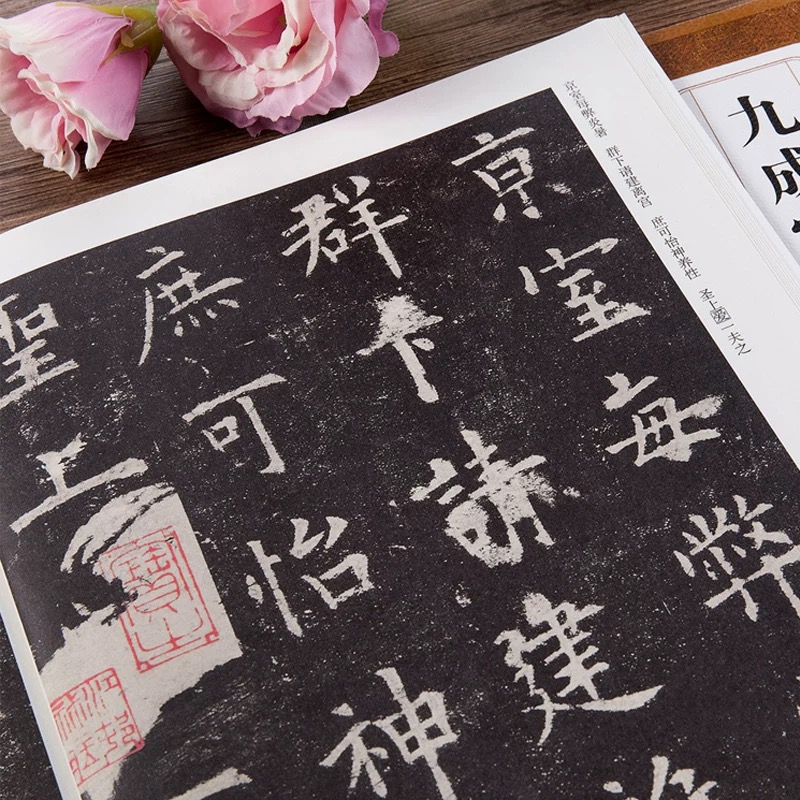 九成
京室每弊炎暑 群下请建离宫 庶可怡神养性 圣上爱一夫之
京室每弊
群下請建
庶可怡神
聖上